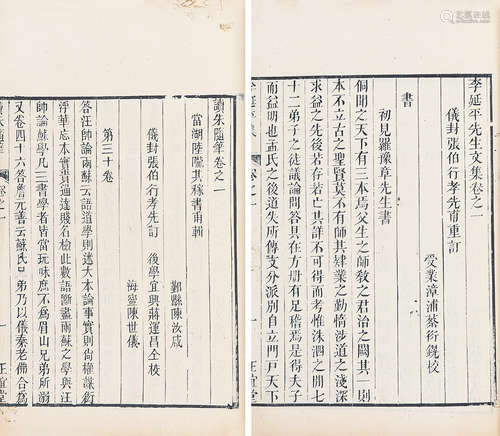 李延平先生文集卷之一
儀封張伯行孝先甫重訂
受業漳浦蔡衍鎤校
書
初見羅豫章先生書
侗聞之天下有三本焉父生之師教之君治之闕其一則
本不立古之聖賢莫不有師其肄業之勤惰涉道之淺深
求益之先後若存若亡其詳不可得而考惟洙泗之間七
十二弟子之徒議論問答具在方册有足稽焉是得夫子
而益明也孟氏之後道失所傳支分派別自立門戶天下
讀朱隨筆卷之一
當湖陸隴其稼書甫輯
鄞縣陳汝咸
儀封張伯行孝先訂 後學宜興蔣運昌仝校
海寧陳世儀
第三十卷
答汪帥論兩蘇云語道學則迷大本論事實則尚權謀衒
浮華忘本實貴通達賤名檢此數語斷盡兩蘇之學與汪
帥論蘇學凡三書學者皆當玩味庶不為眉山兄弟所溺
又卷四十六答詹元善云蘇氏兄弟乃以儀秦老佛合為
卷之一
正誼堂
卷之一
正誼堂